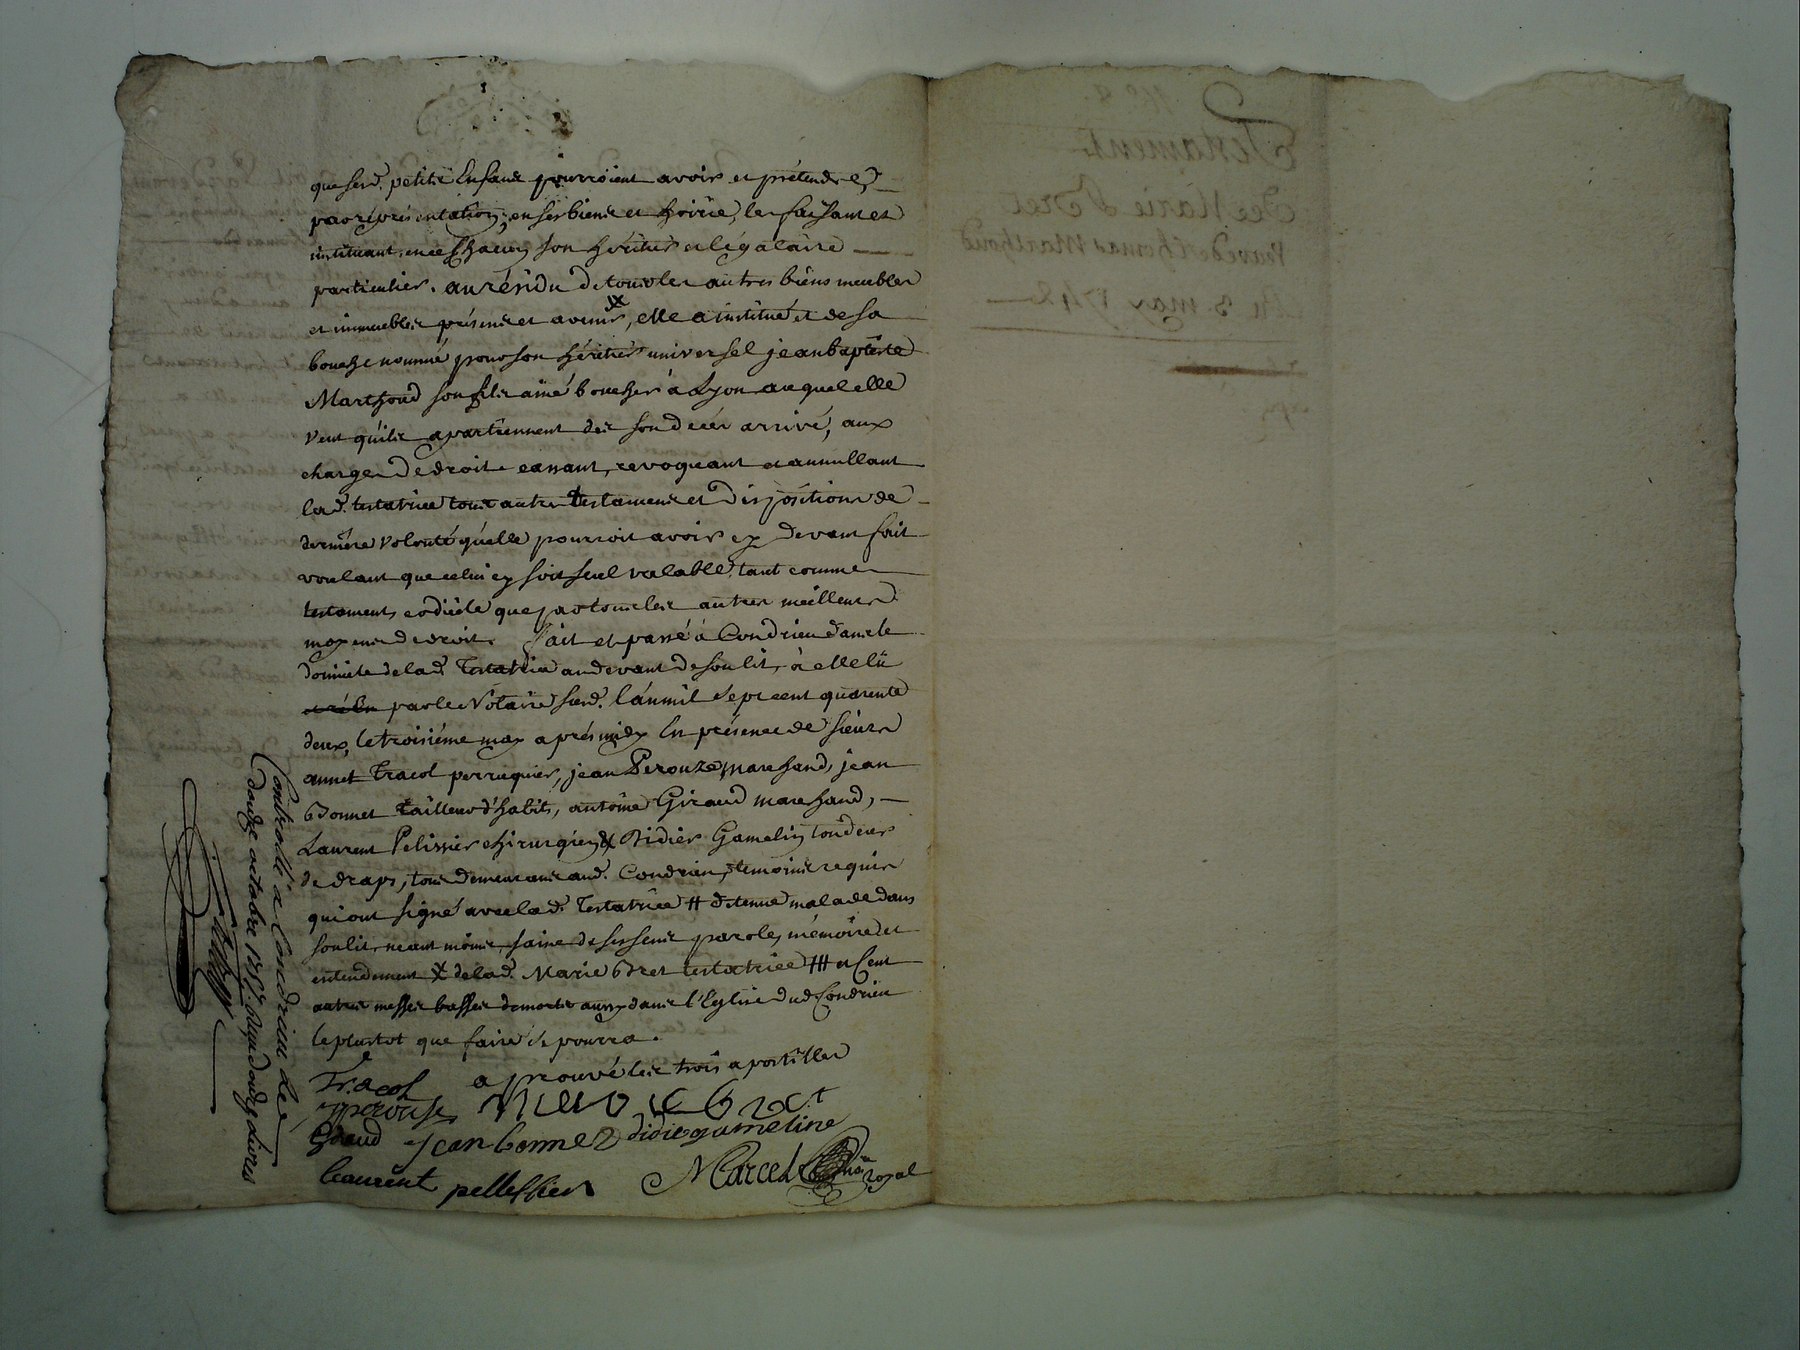 que sesd. petits Enfans pourroient avoir et prétendre
par représentation, en ses biens et hoirie, les faisant et
instituant, en ce chacun son héritier et légataire
particulier. au résidu de tous les autres biens meubles
et immeubles présens et avenir, elle a institué et de sa
bouche nommé pour son héritier universel jean baptiste
Marthoud son fils ainé boucher à Lyon auquel elle
veut qu'ils apartiennent des son décés arrivé, aux
charges de droit cassant, revoquant et annullant
lad. testatrice tous autres testamens et dispositions de
dernière volonté qu'elle pourroit avoir cy devant fait
voulant que celui cy soit seul valable, tant comme
testament, codicile que par tous les autres meilleurs
moyens de droit. Fait et passé à Condrieu dans le
domicile de lad. Testatrice au devant de son lit, à elle lû
et rélu par le Notaire sousd. l'an mil sept cent quarente
deux, le troisiéme may aprés midy En présence de sieurs
annet Tracol perruquier, jean Perouze marchand, jean
Bonnet tailleur d'habits, antoine Giraud marchand,
Laurent Pelissier chirurgien & Didier Gamelin tondeur
de draps, tous demeurans aud. Condrieu, témoins requis
qui ont signé avec lad. Testatrice # détenue malade dans
son lit, neant moins saine de ses sens parole, mémoire et
entendement X de lad. Marie Bret testatrice ## et Cent
autres messes basses de mortes aussy dans l'Eglise dud Condrieu
le plustot que faire se pourra.
aprouvé les trois apostilles
Tracol
perouse
Giraud jean bonnet didie gameline
Laurent pellissier Marcel no.re royal
Controllé à Condrieu le
douze octobre 1757. Reçu douze livres
Testament
De Marie Bret
Veuve de Thomas Marthoud
Du 3 may 1742